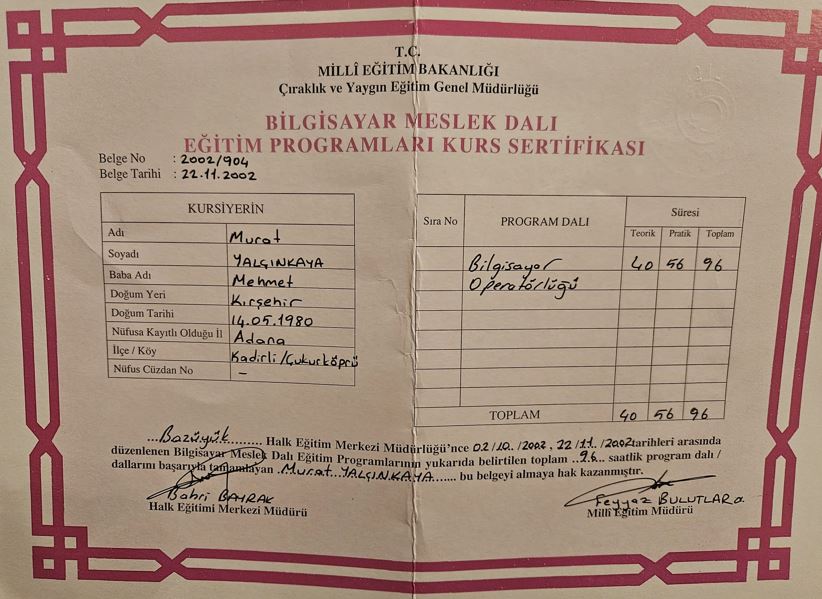 T.C.
MİLLÎ EĞİTİM BAKANLIĞI
Çıraklık ve Yaygın Eğitim Genel Müdürlüğü
BİLGİSAYAR MESLEK DALI
EĞİTİM PROGRAMLARI KURS SERTİFİKASI
Belge No : 2002/904
Belge Tarihi : 22.11.2002
KURSİYERİN
Adı Murat
Soyadı YALÇINKAYA
Baba Adı Mehmet
Doğum Yeri Kırşehir
Doğum Tarihi 14.05.1980
Nüfusa Kayıtlı Olduğu İl Adana
İlçe / Köy Kadirli/Çukurköprü
Nüfus Cüzdan No –
Sıra No PROGRAM DALI Süresi
Teorik Pratik Toplam
Bilgisayar 40 56 96
Operatörlüğü
TOPLAM 40 56 96
...Bozüyük.......... Halk Eğitim Merkezi Müdürlüğü'nce 02/10../2002 , 22/11./2002 tarihleri arasında
düzenlenen Bilgisayar Meslek Dalı Eğitim Programlarının yukarıda belirtilen toplam ..96... saatlik program dalı /
dallarını başarıyla tamamlayan .Murat YALÇINKAYA...... bu belgeyi almaya hak kazanmıştır.
Bahri BAYRAK
Halk Eğitimi Merkezi Müdürü
Feyyaz BULUTLAR
Millî Eğitim Müdürü